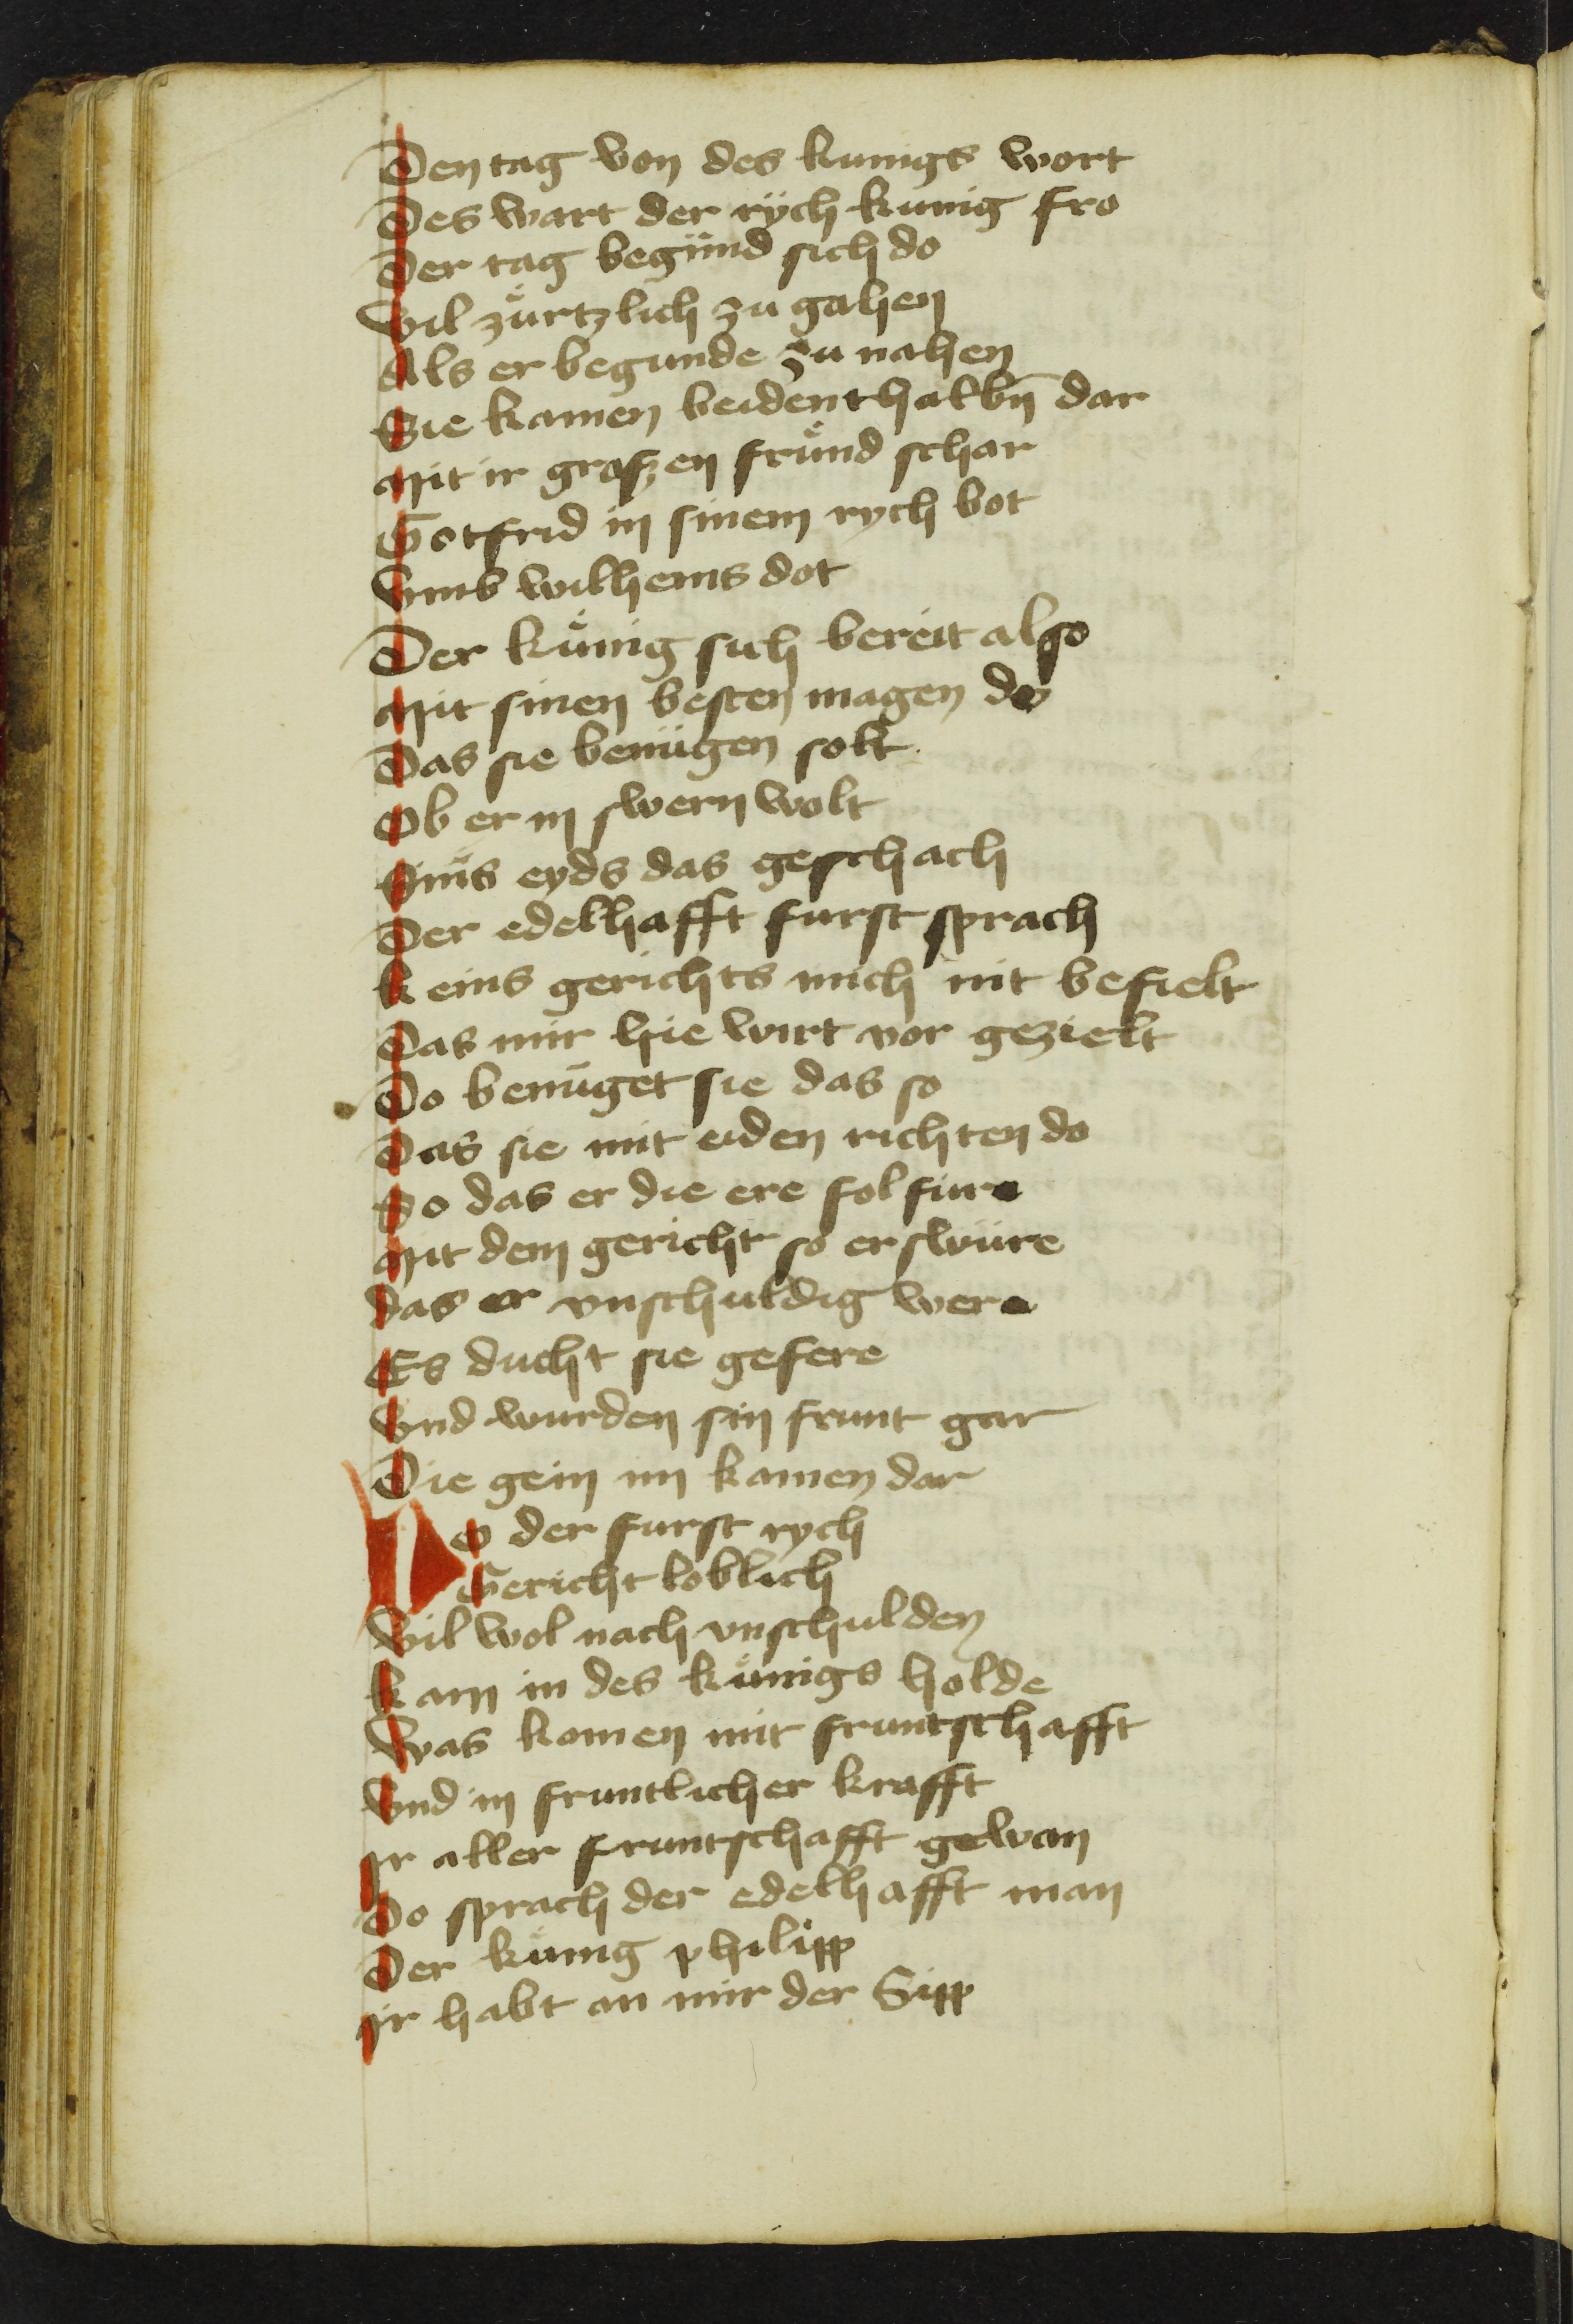 Den tag von des kunigs wort
Des wart der rÿch kunig fro
Der tag begund sich do
Vil zuͤrtzlich zu gahen
Als er begunde zu nahen
Sie kamen beidenthalbn̄ dar
Mit ir groſzen fruͤnd schar
Gotfrid in sinem rych bot
Vmb wilhems dot
Der kuͤnig sich bereit also
Mit sinen besten magen do
Das sie benuͤgen solt
Ob er in swern wolt
Sins eyds das geschach
Der edelhafft furst sprach
Keins gerichts mich nit befielt
Das mir hie wirt vor gezielt
Do benuͤget sie das so
Das sie mit eiden richten do
So das er die ere folfure
Mit dem gericht so er swuͤre
das er vnschuldig were
Es ducht sie gefere
Vnd wurden sin frunt gar
Die gein im kamen dar
Do der furst rych
Gericht loblich
Vil wol nach vnschulden
Kam in des kuͤnigs holde
Was komen mit fruntschafft
Vnd in fruntlicher krafft
Ir aller fruntschafft gewan
Do sprach der edelhafft man
Der kuͤnig philipp
Ir habt an mir der Sipp